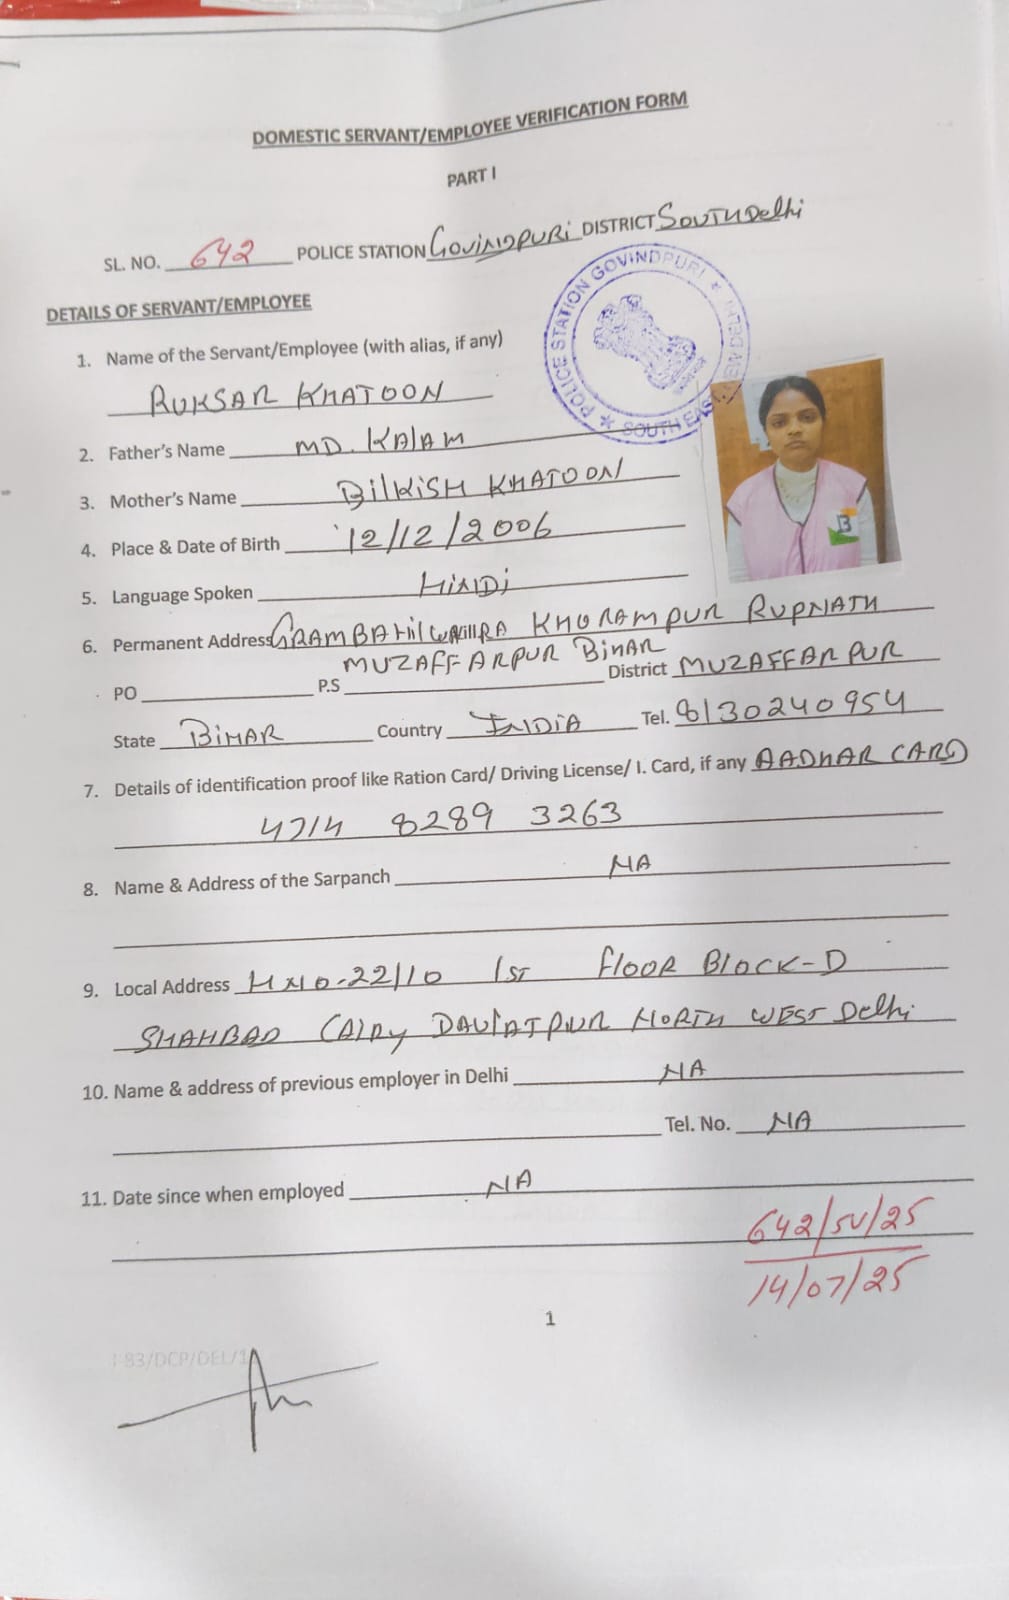 DOMESTIC SERVANT/EMPLOYEE VERIFICATION FORM
PART I
SL. NO. 642 POLICE STATION GOVINDPURI DISTRICT SOUTH Delhi
POLICE STATION GOVINDPURI
SOUTH EAST NEW DELHI
DETAILS OF SERVANT/EMPLOYEE
1. Name of the Servant/Employee (with alias, if any)
RUKSAR KHATOON
2. Father's Name MD. KALAM
3. Mother's Name BILKISH KHATOON
4. Place & Date of Birth 12/12/2006
5. Language Spoken HINDI
B
6. Permanent Address KHORAMPUR RUPNATH
MUZAFFARPUR BIHAR
PO P.S District MUZAFFARPUR
State BIHAR Country INDIA Tel. 8130240954
7. Details of identification proof like Ration Card/ Driving License/ I. Card, if any AADHAR CARD
4714 8289 3263
8. Name & Address of the Sarpanch NA
9. Local Address HNO-22/10 1ST FLOOR BLOCK-D
SHAHBAD DAULATPUR NORTH WEST Delhi
10. Name & address of previous employer in Delhi NA
Tel. No. NA
11. Date since when employed NA
642/SV/25
14/07/25
1
83/DCP/DEL/1